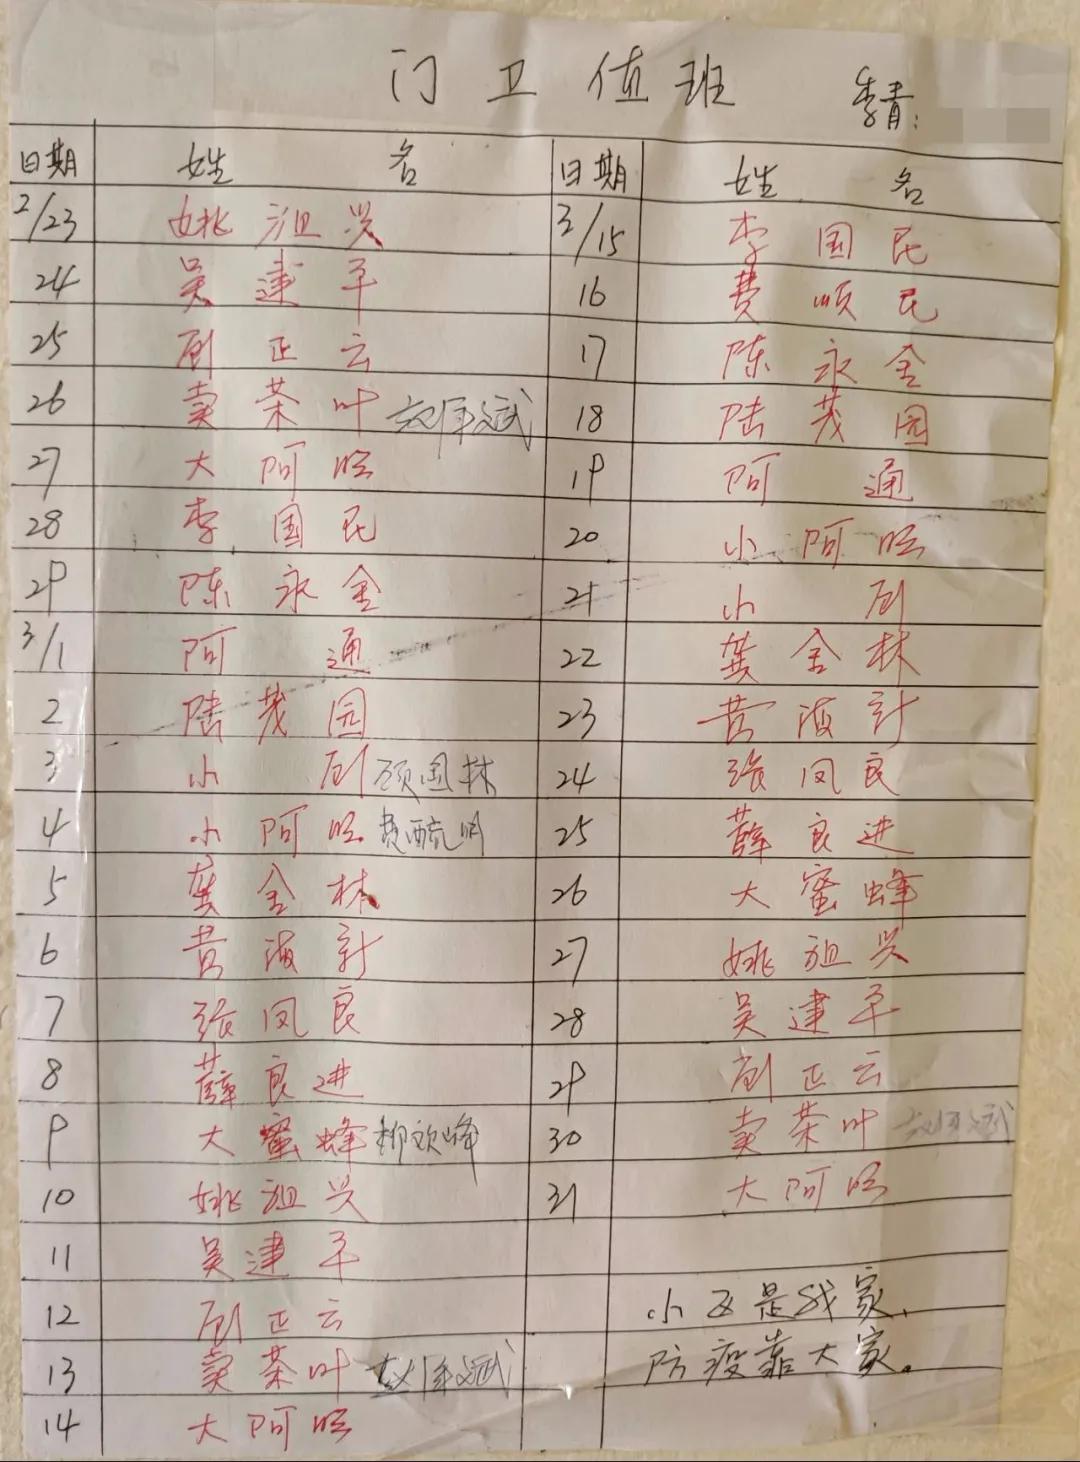 门卫值班
季青:
日期 姓名
2/23 姚祖兴
24 吴建平
25 周正云
26 卖茶叶 赵泽斌
27 大阿旺
28 李国民
29 陈永金
3/1 阿通
2 陆茂园
3 小周 顾国林
4 小阿旺
5 龚金林
6 黄海新
7 张凤良
8 薛良进
9 大蜜蜂 柳欢峰
10 姚祖兴
11 吴建平
12 周正云
13 卖茶叶 赵泽斌
14 大阿旺
日期 姓名
3/15 李国民
16 费顺民
17 陈永金
18 陆茂园
19 阿通
20 小阿旺
21 小周
22 龚金林
23 黄海新
24 张凤良
25 薛良进
26 大蜜蜂
27 姚祖兴
28 吴建平
29 周正云
30 卖茶叶 赵泽斌
31 大阿旺
小区是我家,
防疫靠大家。